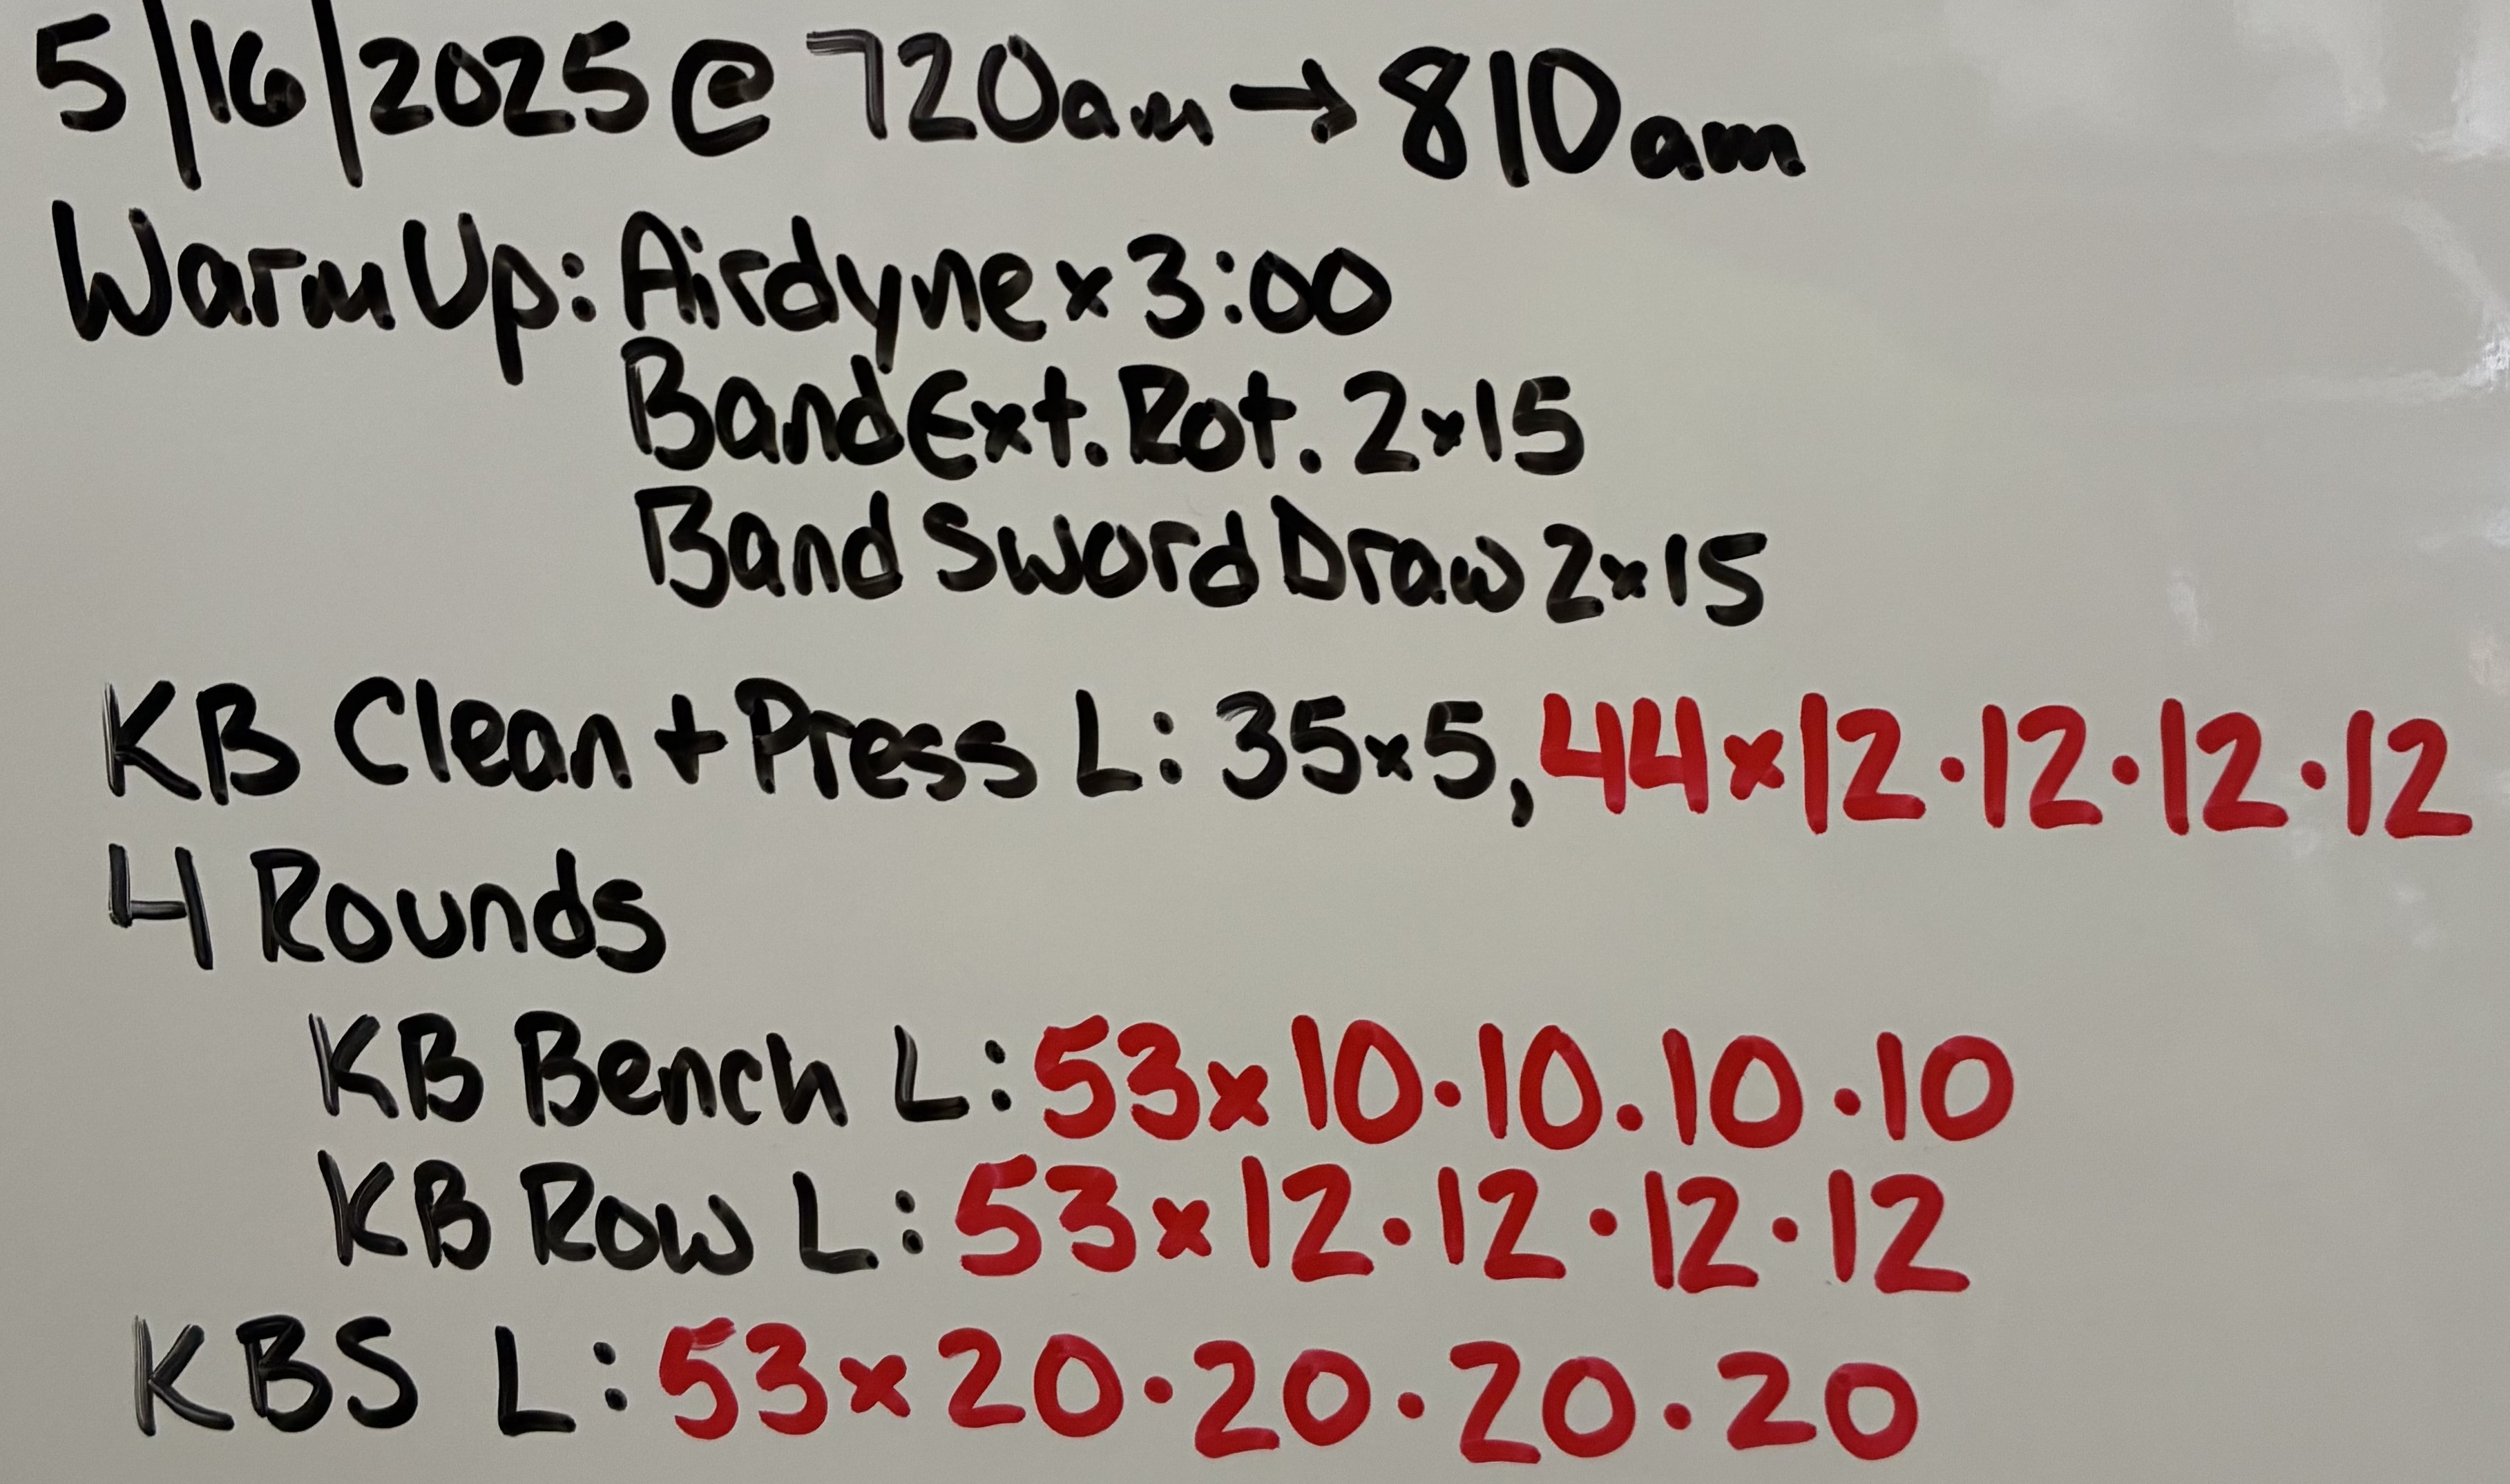 5/16/2025 @ 720am → 810am
Warm Up: Airdyne x 3:00
Band Ext. Rot. 2x15
Band Sword Draw 2x15
KB Clean + Press L: 35x5, 44x12·12·12·12
4 Rounds
KB Bench L: 53x10·10·10·10
KB Row L: 53x12·12·12·12
KBS L: 53x20·20·20·20